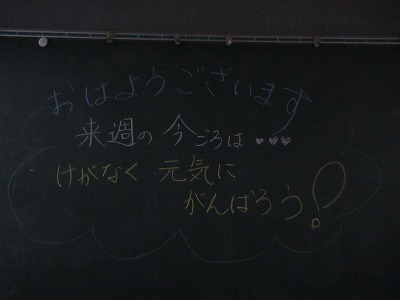 おはようございます
来週の今ごろは♡♡♡
けがなく 元気に
がんばろう!